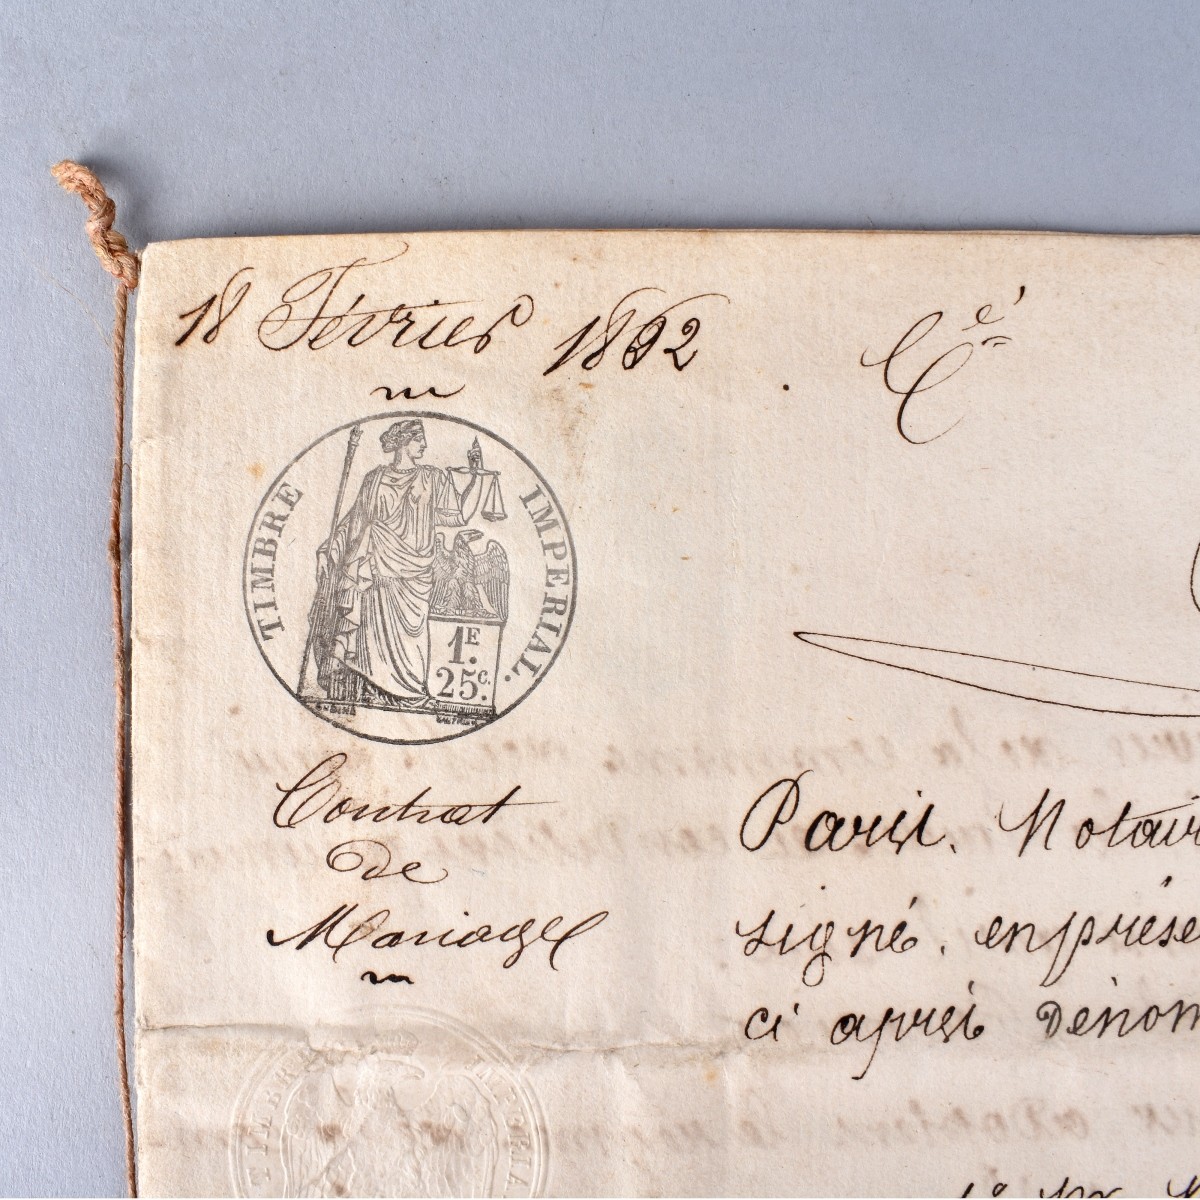 18 Février 1862
Cé
TIMBRE IMPERIAL.
1F.
25c.
Contrat
de
Mariage
Paris. Notair
signé, en prése
ci après dénom
TIMBRE IMPERIA